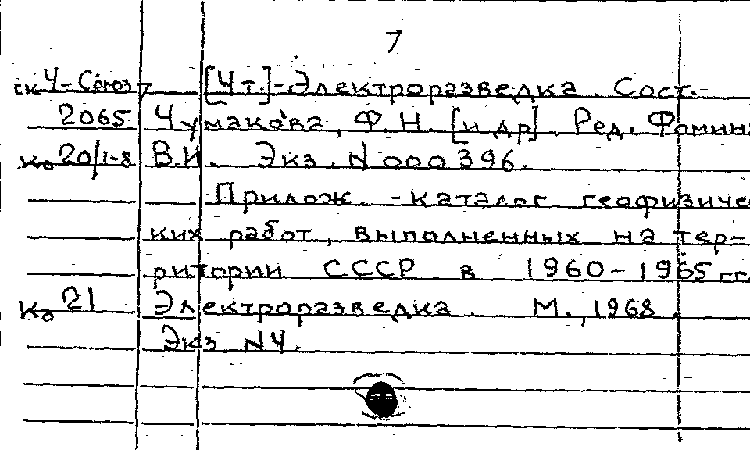 7
ск Ч-Союз т [Чт.]-Электроразведка. Сост.-
2065 Чумакова, Ф.Н. [и др]. Ред. Фомина
Ко 20/1-8 В.И. Экз. N 000396.
Прилож. - каталог геофизичес
ких работ, выполненных на тер-
ритории СССР в 1960-1965 гг
Ко 21 Электроразведка. М., 1968.
Экз N4.